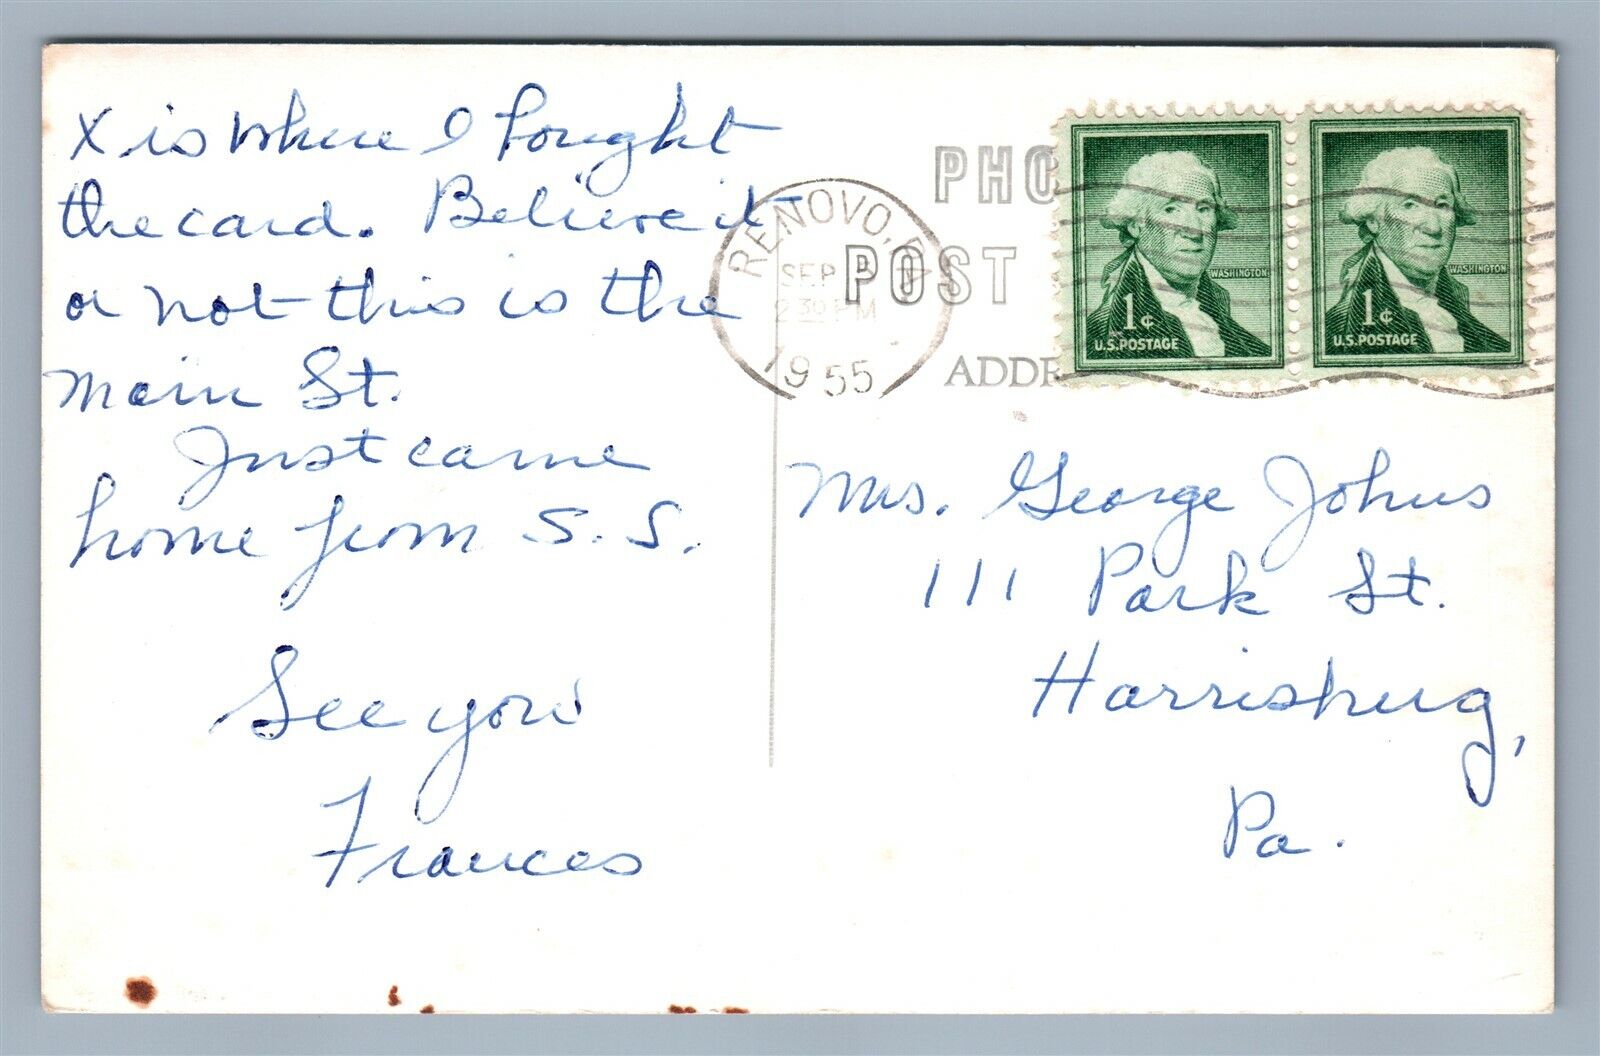 x is where I bought
the card. Believe it
or not this is the
main St.
Just came
home from S. S.
See you
Frances
PHO
POST
ADDR
RENOVO, PA
SEP
2 30 PM
1955
WASHINGTON
1¢
U.S. POSTAGE
WASHINGTON
1¢
U.S. POSTAGE
Mrs. George Johns
111 Park St.
Harrisburg,
Pa.